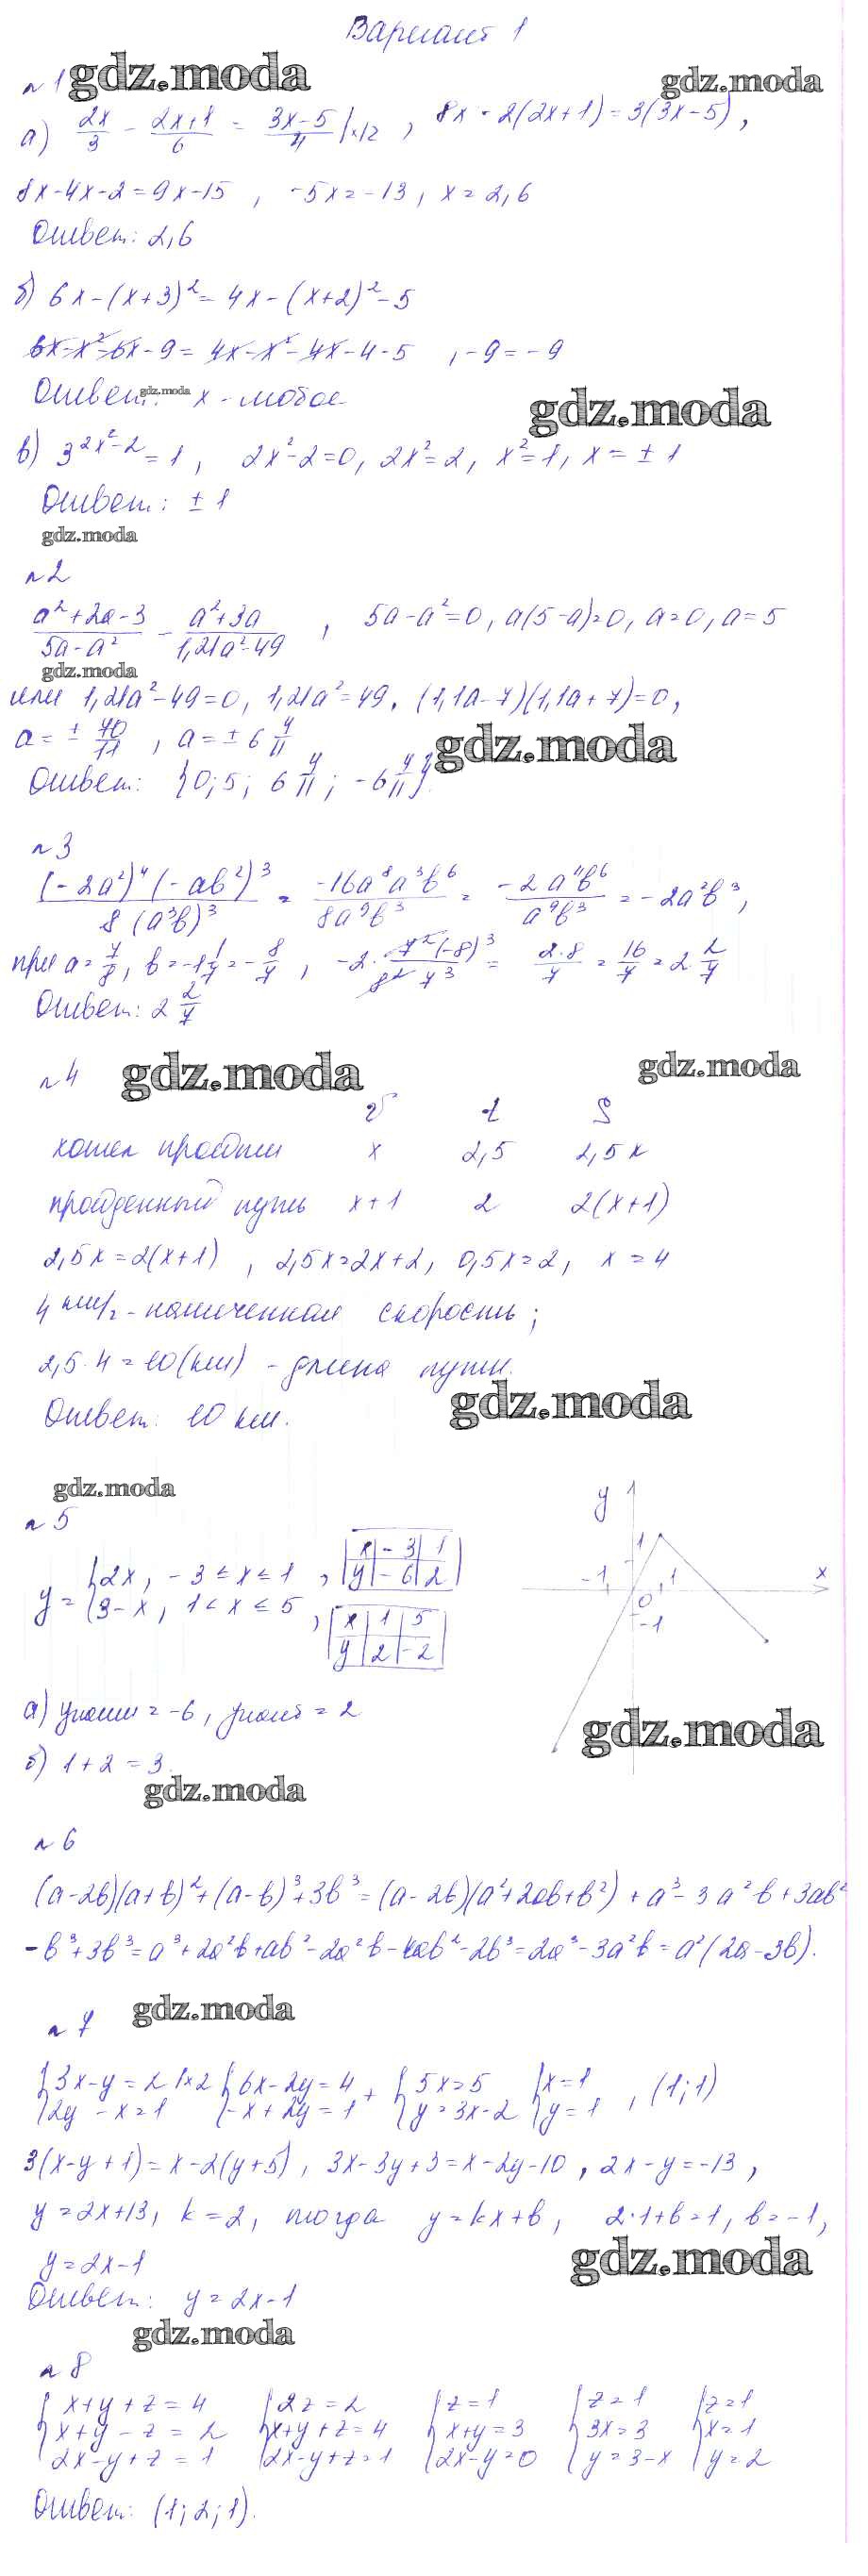 Вариант 1
№1 gdz.moda gdz.moda
а) 2x/3 - 2x+1/6 = 3x-5/4 |×12 , 8x - 2(2x+1) = 3(3x-5),
8x-4x-2=9x-15 , -5x=-13, x=2,6
Ответ: 2,6
б) 6x-(x+3)²=4x-(x+2)²-5
6x-x²-6x-9=4x-x²-4x-4-5 , -9=-9
Ответ: gdz.moda x - любое
gdz.moda
в) 3^(2x²-2)=1, 2x²-2=0, 2x²=2, x²=1, x=±1
Ответ: ±1
gdz.moda
№2
a²+2a-3/5a-a² - a²+3a/1,21a²-49 , 5a-a²=0, a(5-a)=0, a=0, a=5
gdz.moda
или 1,21a²-49=0, 1,21a²=49, (1,1a-7)(1,1a+7)=0,
a=± 70/11 , a=±6 4/11 gdz.moda
Ответ: {0; 5; 6 4/11; -6 4/11}.
№3
(-2a²)⁴(-ab²)³/8(a³b)³ = -16a⁸a³b⁶/8a⁹b³ = -2a¹¹b⁶/a⁹b³ = -2a²b³,
при a=7/8, b=-1 1/7=-8/7 , -2·7²(-8)³/8²7³ = 2·8/7 = 16/7 = 2 2/7
Ответ: 2 2/7
№4 gdz.moda gdz.moda
v t S
хотел пройти x 2,5 2,5x
пройденный путь x+1 2 2(x+1)
2,5x=2(x+1) , 2,5x=2x+2, 0,5x=2, x=4
4 км/ч - намеченная скорость;
2,5·4=10(км) - длина пути.
Ответ: 10 км.
gdz.moda
gdz.moda
№5
y={2x, -3≤x≤1 , x -3 1 y -6 2
{3-x, 1<x≤5 , x 1 5 y 2 -2
y 1 1 x -1 0 1 -1
а) yнаим=-6, yнаиб=2
gdz.moda
б) 1+2=3.
gdz.moda
№6
(a-2b)(a+b)²+(a-b)³+3b³=(a-2b)(a²+2ab+b²)+a³-3a²b+3ab²
-b³+3b³=a³+2a²b+ab²-2a²b-4ab²-2b³=2a³-3a²b=a²(2a-3b).
№7 gdz.moda
{3x-y=2 |×2 {6x-2y=4 + {5x=5 {x=1
{2y-x=1 {-x+2y=1 {y=3x-2 {y=1 , (1;1)
3(x-y+1)=x-2(y+5), 3x-3y+3=x-2y-10, 2x-y=-13,
y=2x+13, k=2, тогда y=kx+b, 2·1+b=1, b=-1,
y=2x-1 gdz.moda
Ответ: y=2x-1
gdz.moda
№8
{x+y+z=4 {2z=2 {z=1 {z=1 {z=1
{x+y-z=2 {x+y+z=4 {x+y=3 {3x=3 {x=1
{2x-y+z=1 {2x-y+z=1 {2x-y=0 {y=3-x {y=2
Ответ: (1; 2; 1).